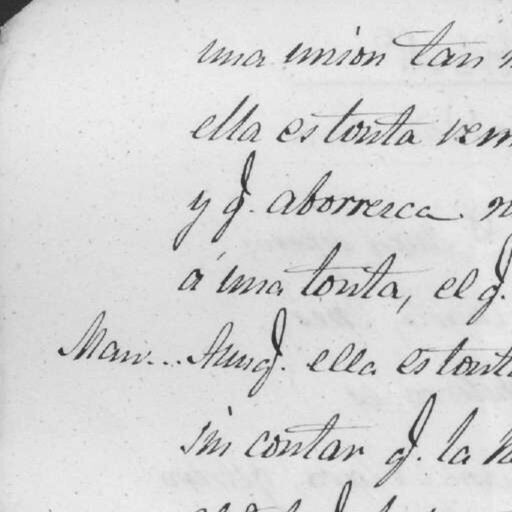 una union tan
ella es tonta
y q. aborresca
á una tonta, el q.
Man... Aunq. ella es tonta
sin contar q. la